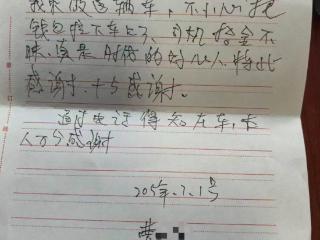 我来做这辆车，不小心把
钱包拉下车上了，司机拾金不
昧，真是时代的好人特此
感谢，十分感谢。
通过电话得知左车，长
人万分感谢
205年.7.1号